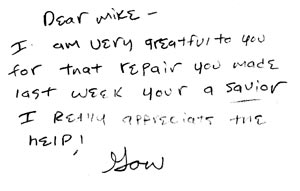 Dear Mike –
I am very greatful to you
for that repair you made
last week your a savior
I really appreciate the
help!